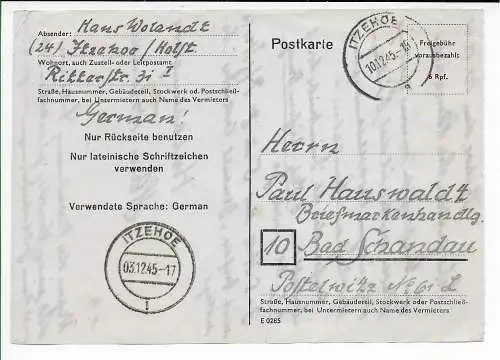 Absender: Hans Wolandt
(24) Itzehoe / Holst.
Wohnort, auch Zustell- oder Leitpostamt
Ritterstr. 3i I
Straße, Hausnummer, Gebäudeteil, Stockwerk od. Postschließ-
fachnummer, bei Untermietern auch Name des Vermieters
German!
Nur Rückseite benutzen
Nur lateinische Schriftzeichen
verwenden
Verwendete Sprache: German
ITZEHOE
03.12.45-17
1
Postkarte
ITZEHOE
10.12.45-15
a
Freigebühr
vorausbezahlt
6 Rpf.
Herrn
Paul Hauswaldt
Briefmarkenhandlg.
10 Bad Schandau
Postelwitz No 61 L
Straße, Hausnummer, Gebäudeteil, Stockwerk oder Postschließ-
fachnummer, bei Untermietern auch Name des Vermieters
E 0285